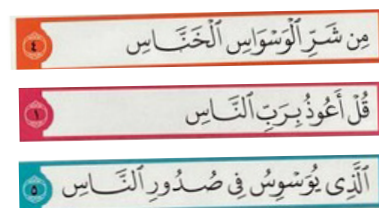 مِن شَرِّ ٱلْوَسْوَاسِ ٱلْخَنَّاسِ ٤
قُلْ أَعُوذُ بِرَبِّ ٱلنَّاسِ ١
ٱلَّذِى يُوَسْوِسُ فِى صُدُورِ ٱلنَّاسِ ٥